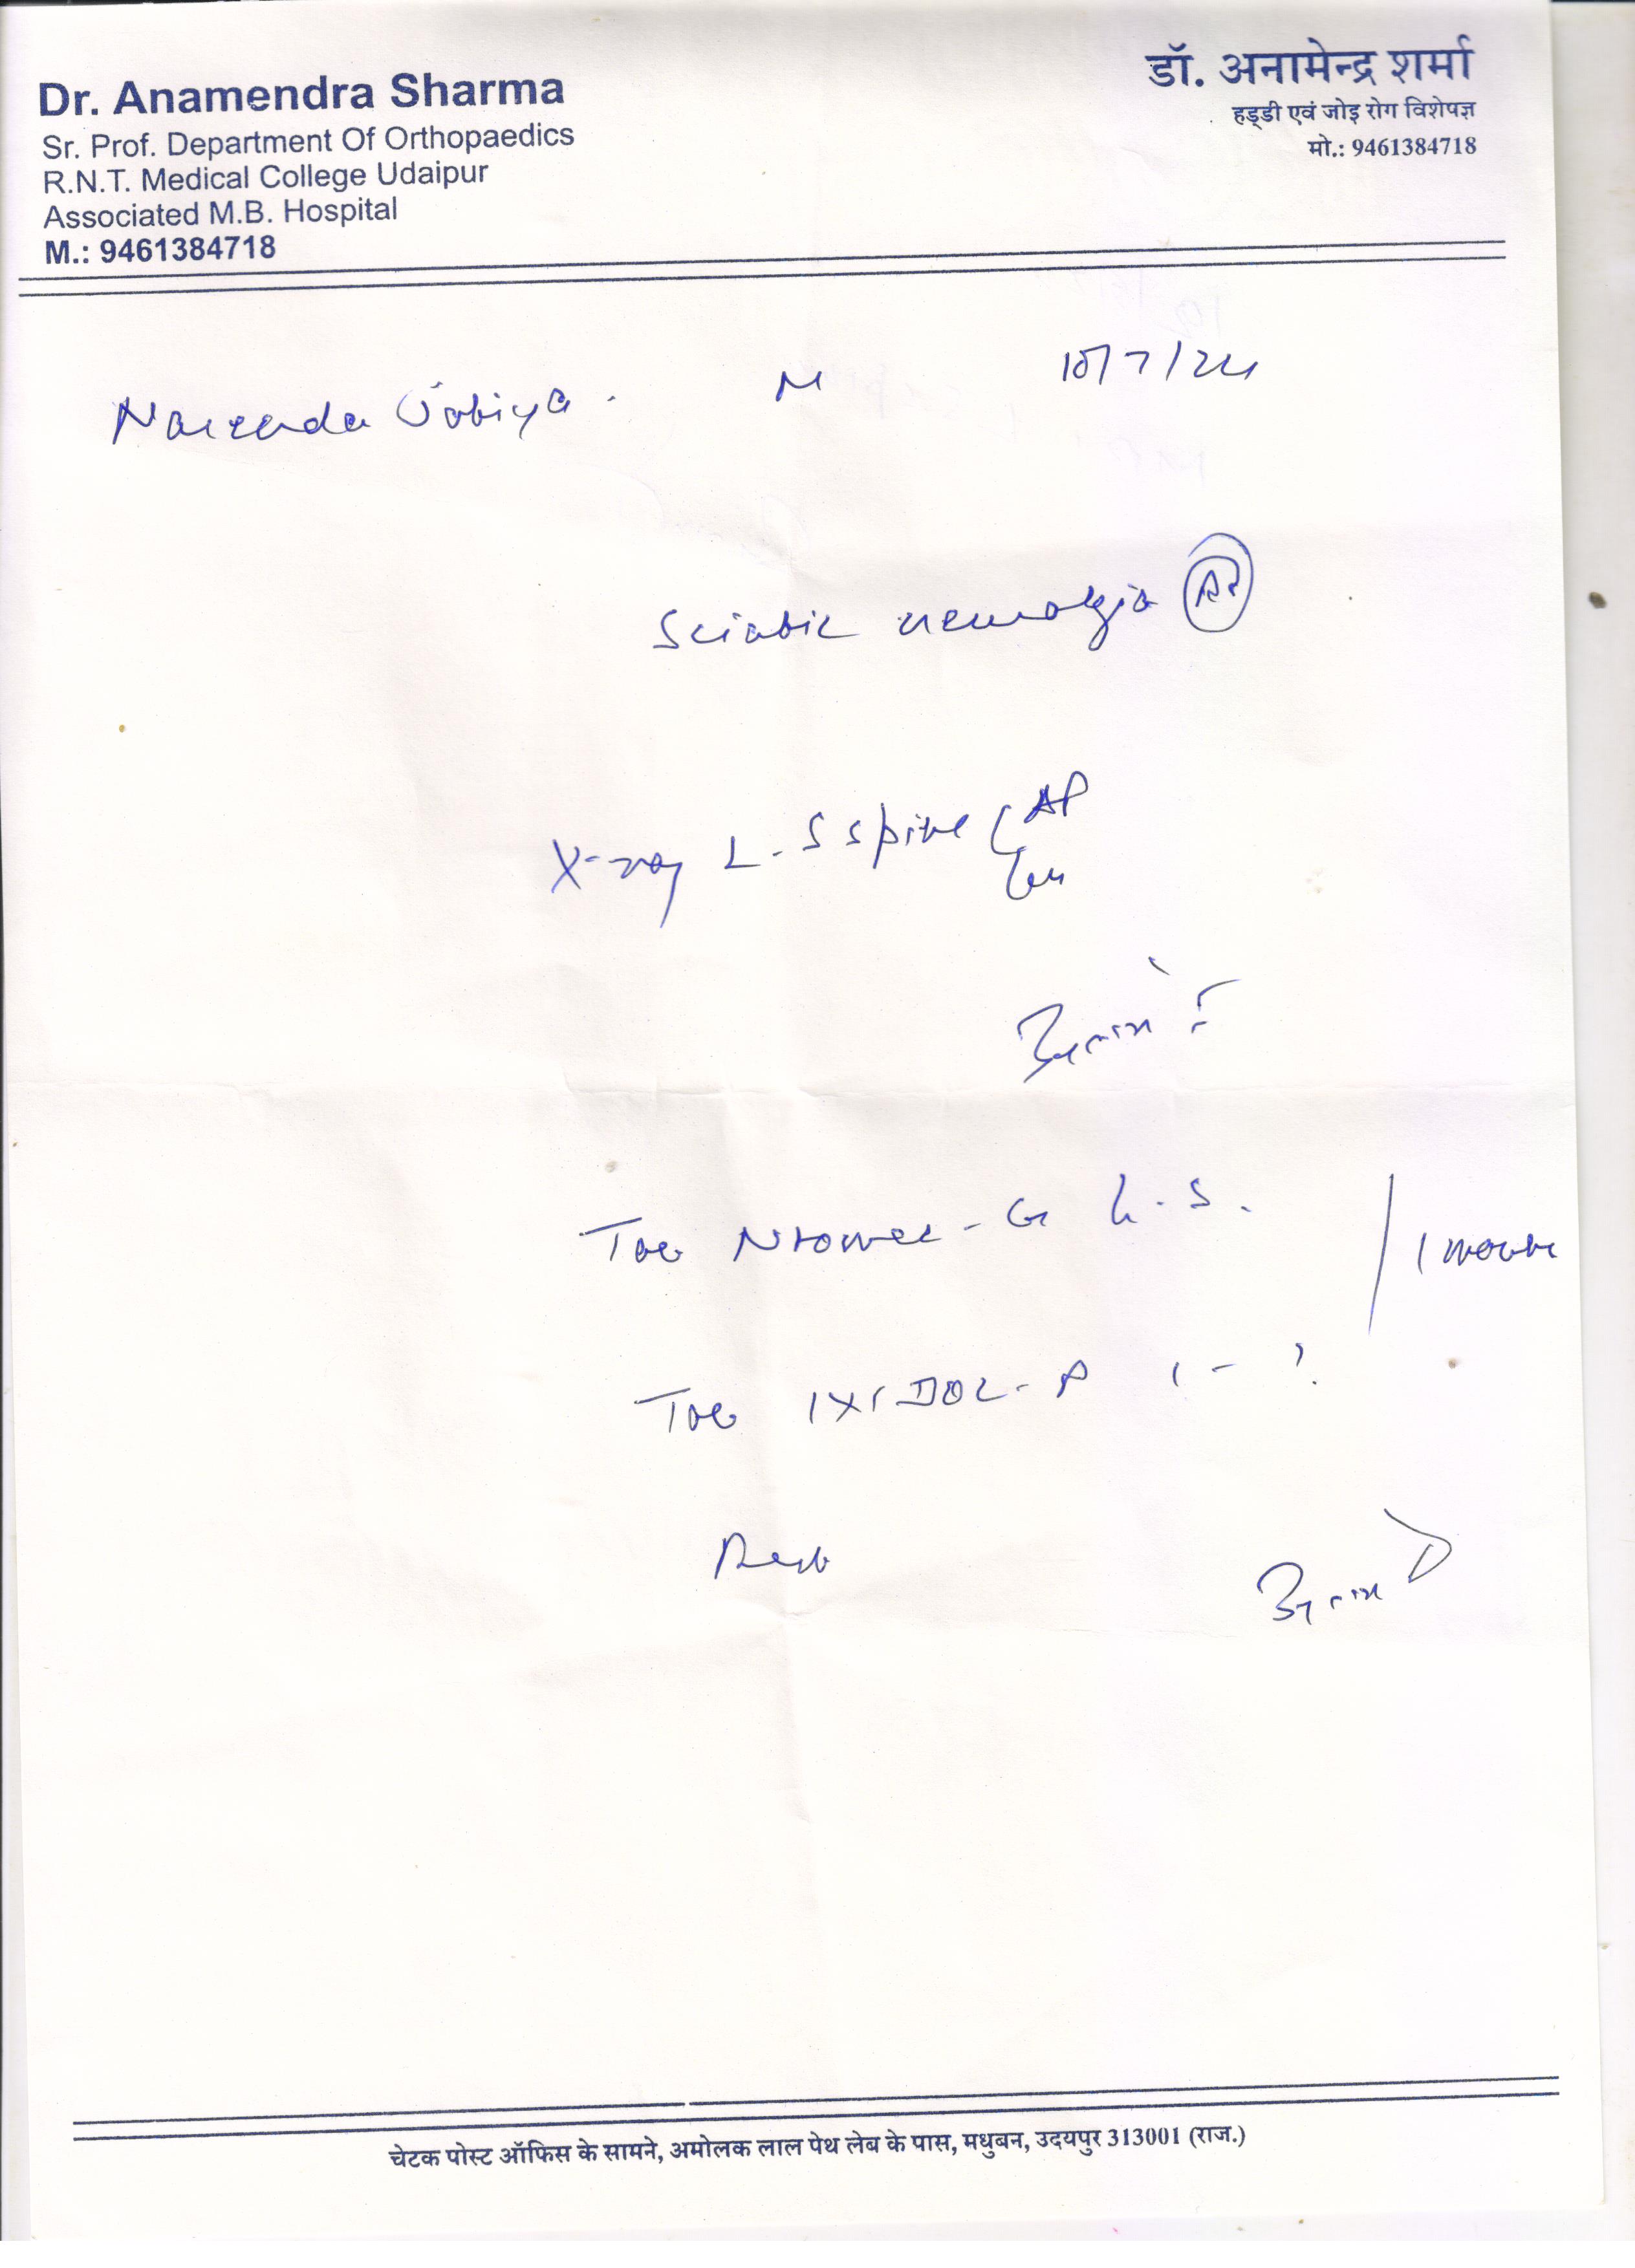 Dr. Anamendra Sharma
Sr. Prof. Department Of Orthopaedics
R.N.T. Medical College Udaipur
Associated M.B. Hospital
M.: 9461384718
डॉ. अनामेन्द्र शर्मा
हड्डी एवं जोड़ रोग विशेषज्ञ
मो.: 9461384718
M
10/7/24
Sciatic neuralgia Rt
X-ray L-S spine AP
Tab
h.s.
1 month
Tab IXIDOL-P 1-1
Rest
चेटक पोस्ट ऑफिस के सामने, अमोलक लाल पेथ लेब के पास, मधुबन, उदयपुर 313001 (राज.)